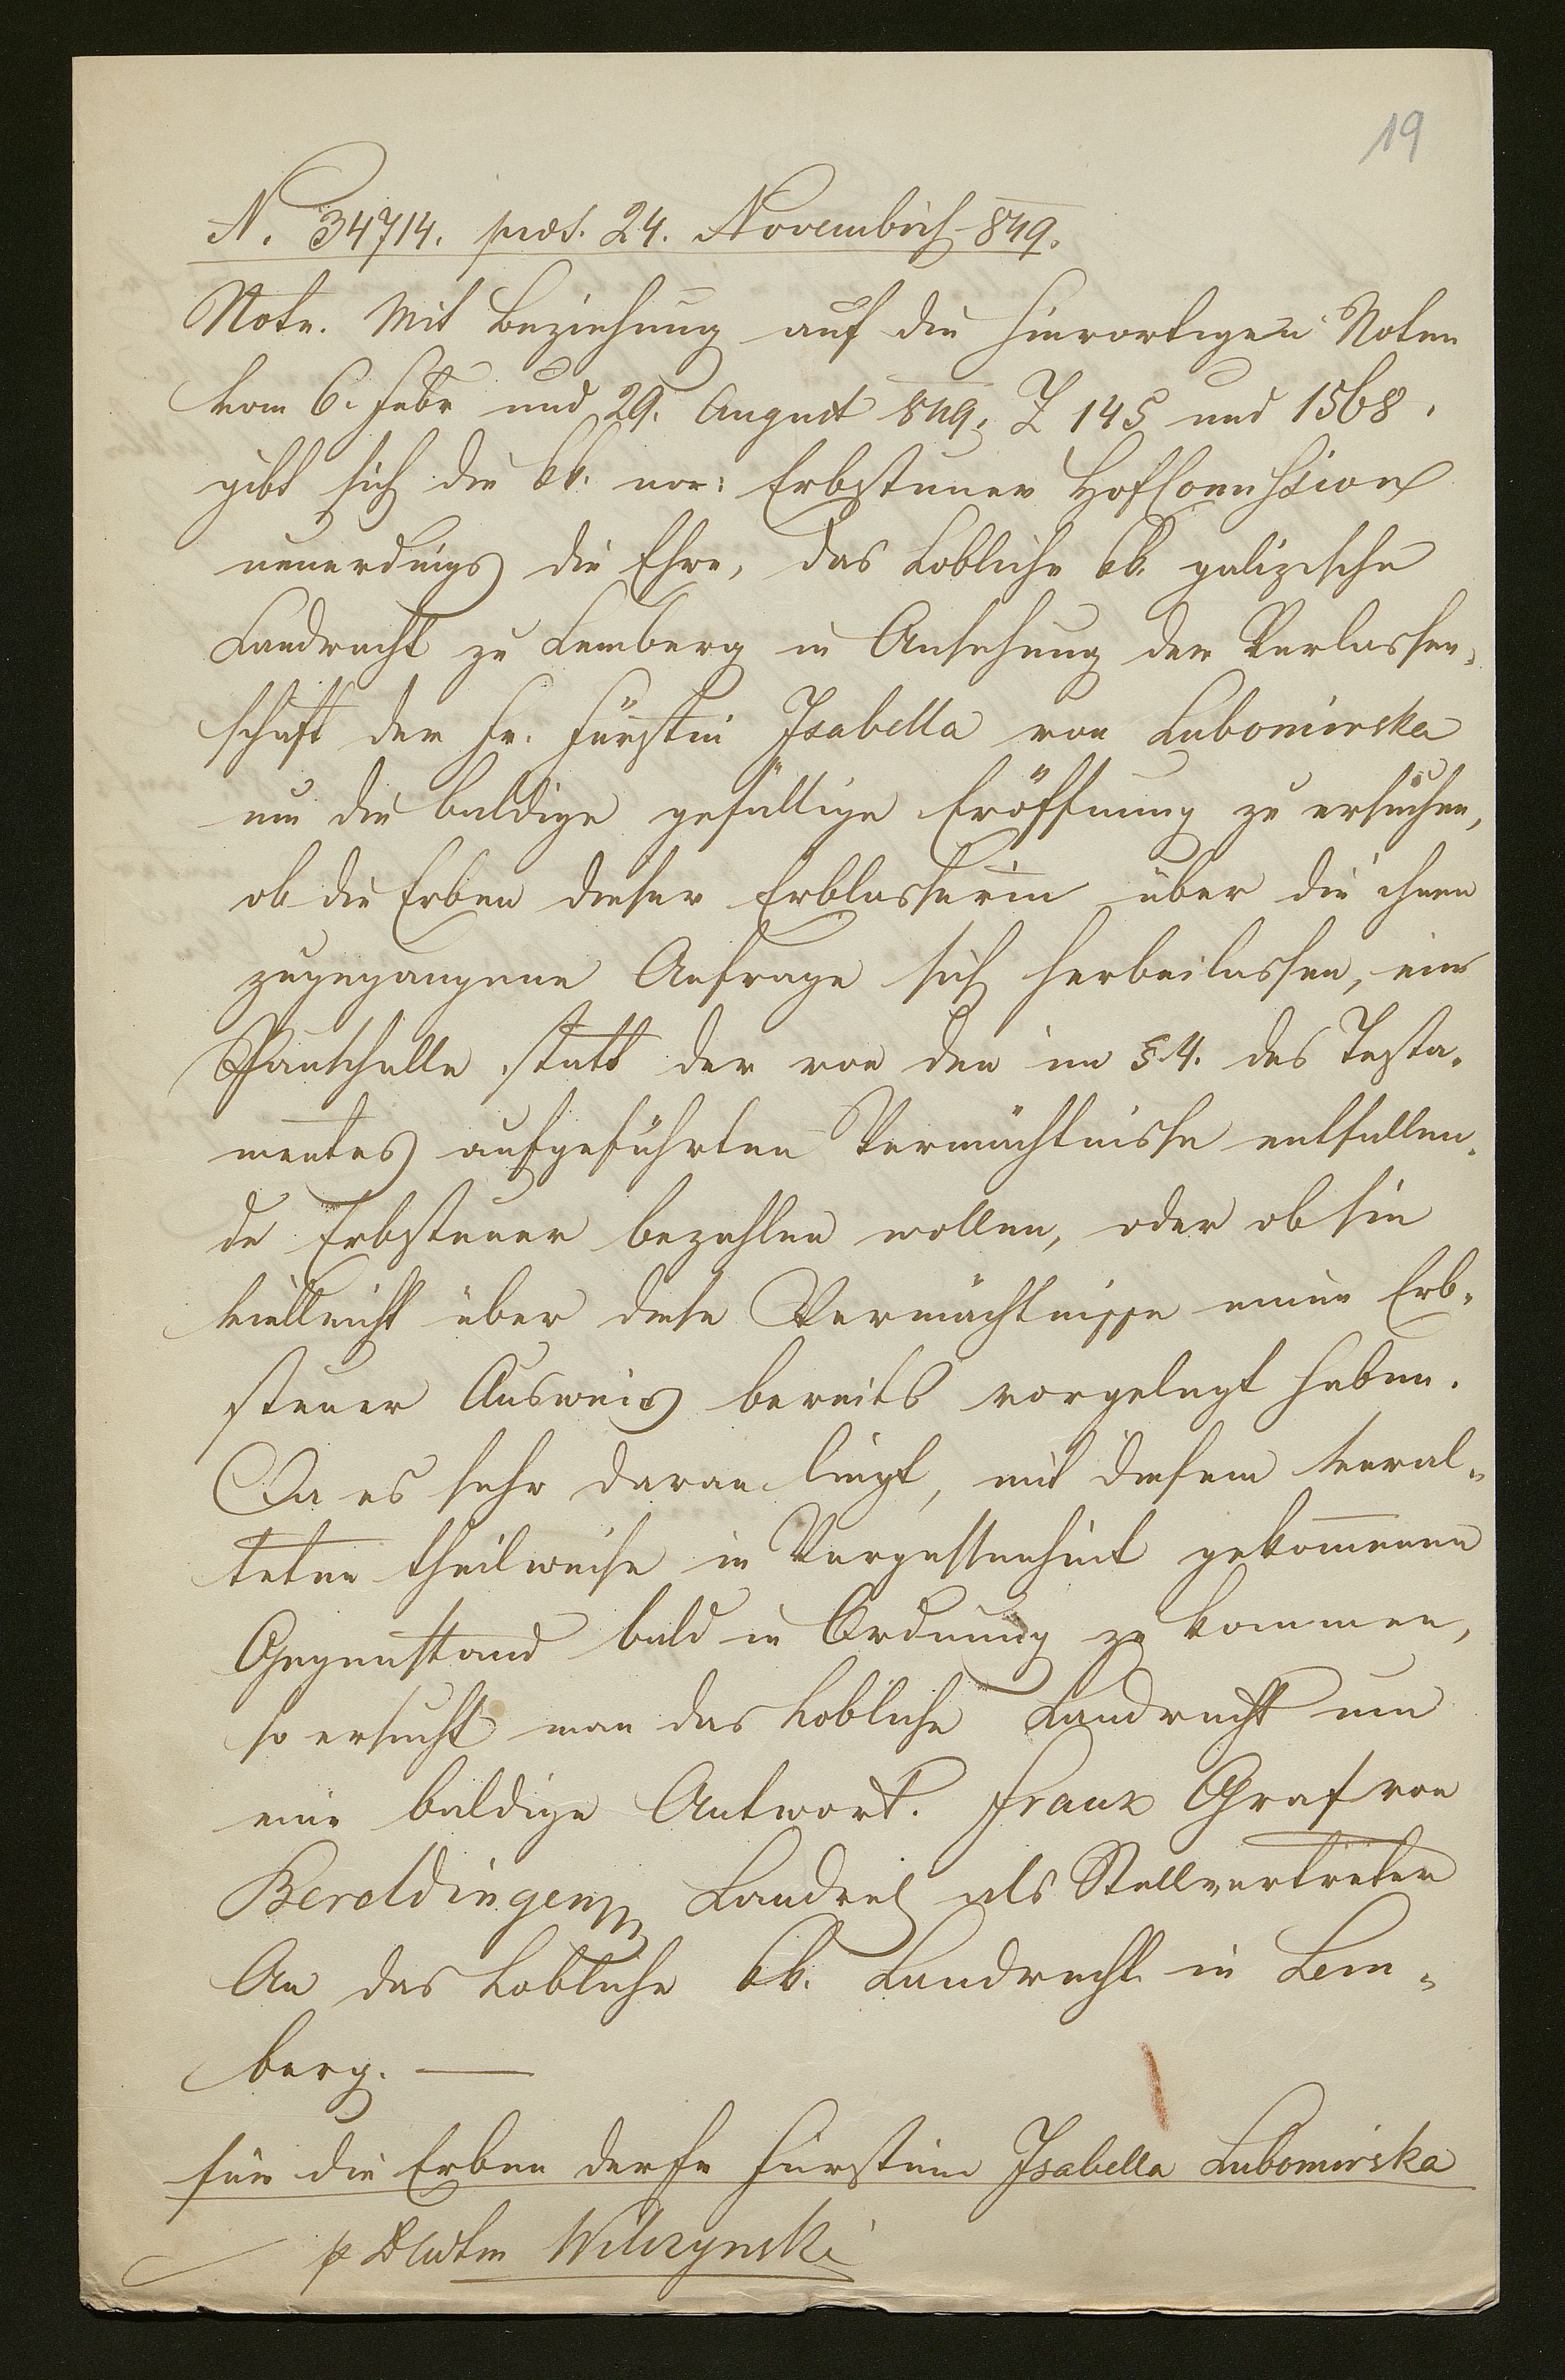 19
N. 34714. präs. 24. November 849.
Note. Mit Beziehung auf die hierortigen Noten
vom 6. Febr und 29. August 849, Z 145 und 1568.
gibt sich die kk. n.oe: Erbsteuer Hofcommission
neuerdings die Ehre, das Löbliche kk. galizische
Landrecht zu Lemberg in Ansehung der Verlassen„
schaft der Fr. Fürstin Isabella von Lubomirska
um die baldige gefällige Eröffnung zu ersuchen,
ob die Erben dieser Erblasserin über die ihnen
zugegangene Anfrage sich herbeilassen, eine
Pauschalle statt der von den im §4. des Testa„
mentes aufgeführten Vermächtnisse entfallen„
de Erbsteuer bezahlen wollen, oder ob sie
vielleicht über diese Vermächtnisse einen Erb„
steuer Ausweis bereits vorgelegt haben.
Da es sehr daran liegt, mit diesem veral„
teten theilweise in Vergessenheit gekommenen
Gegenstand bald in Ordnung zu kommen,
so ersucht man das Löbliche Landrecht um
eine baldige Antwort. Franz Graf von
Beroldingen Landrel als Stellvertreter
An das Löbliche kk. Landrecht in Lem„
berg. —
für die Erben der Fr Fürstin Isabella Lubomirska
p Wilczynski